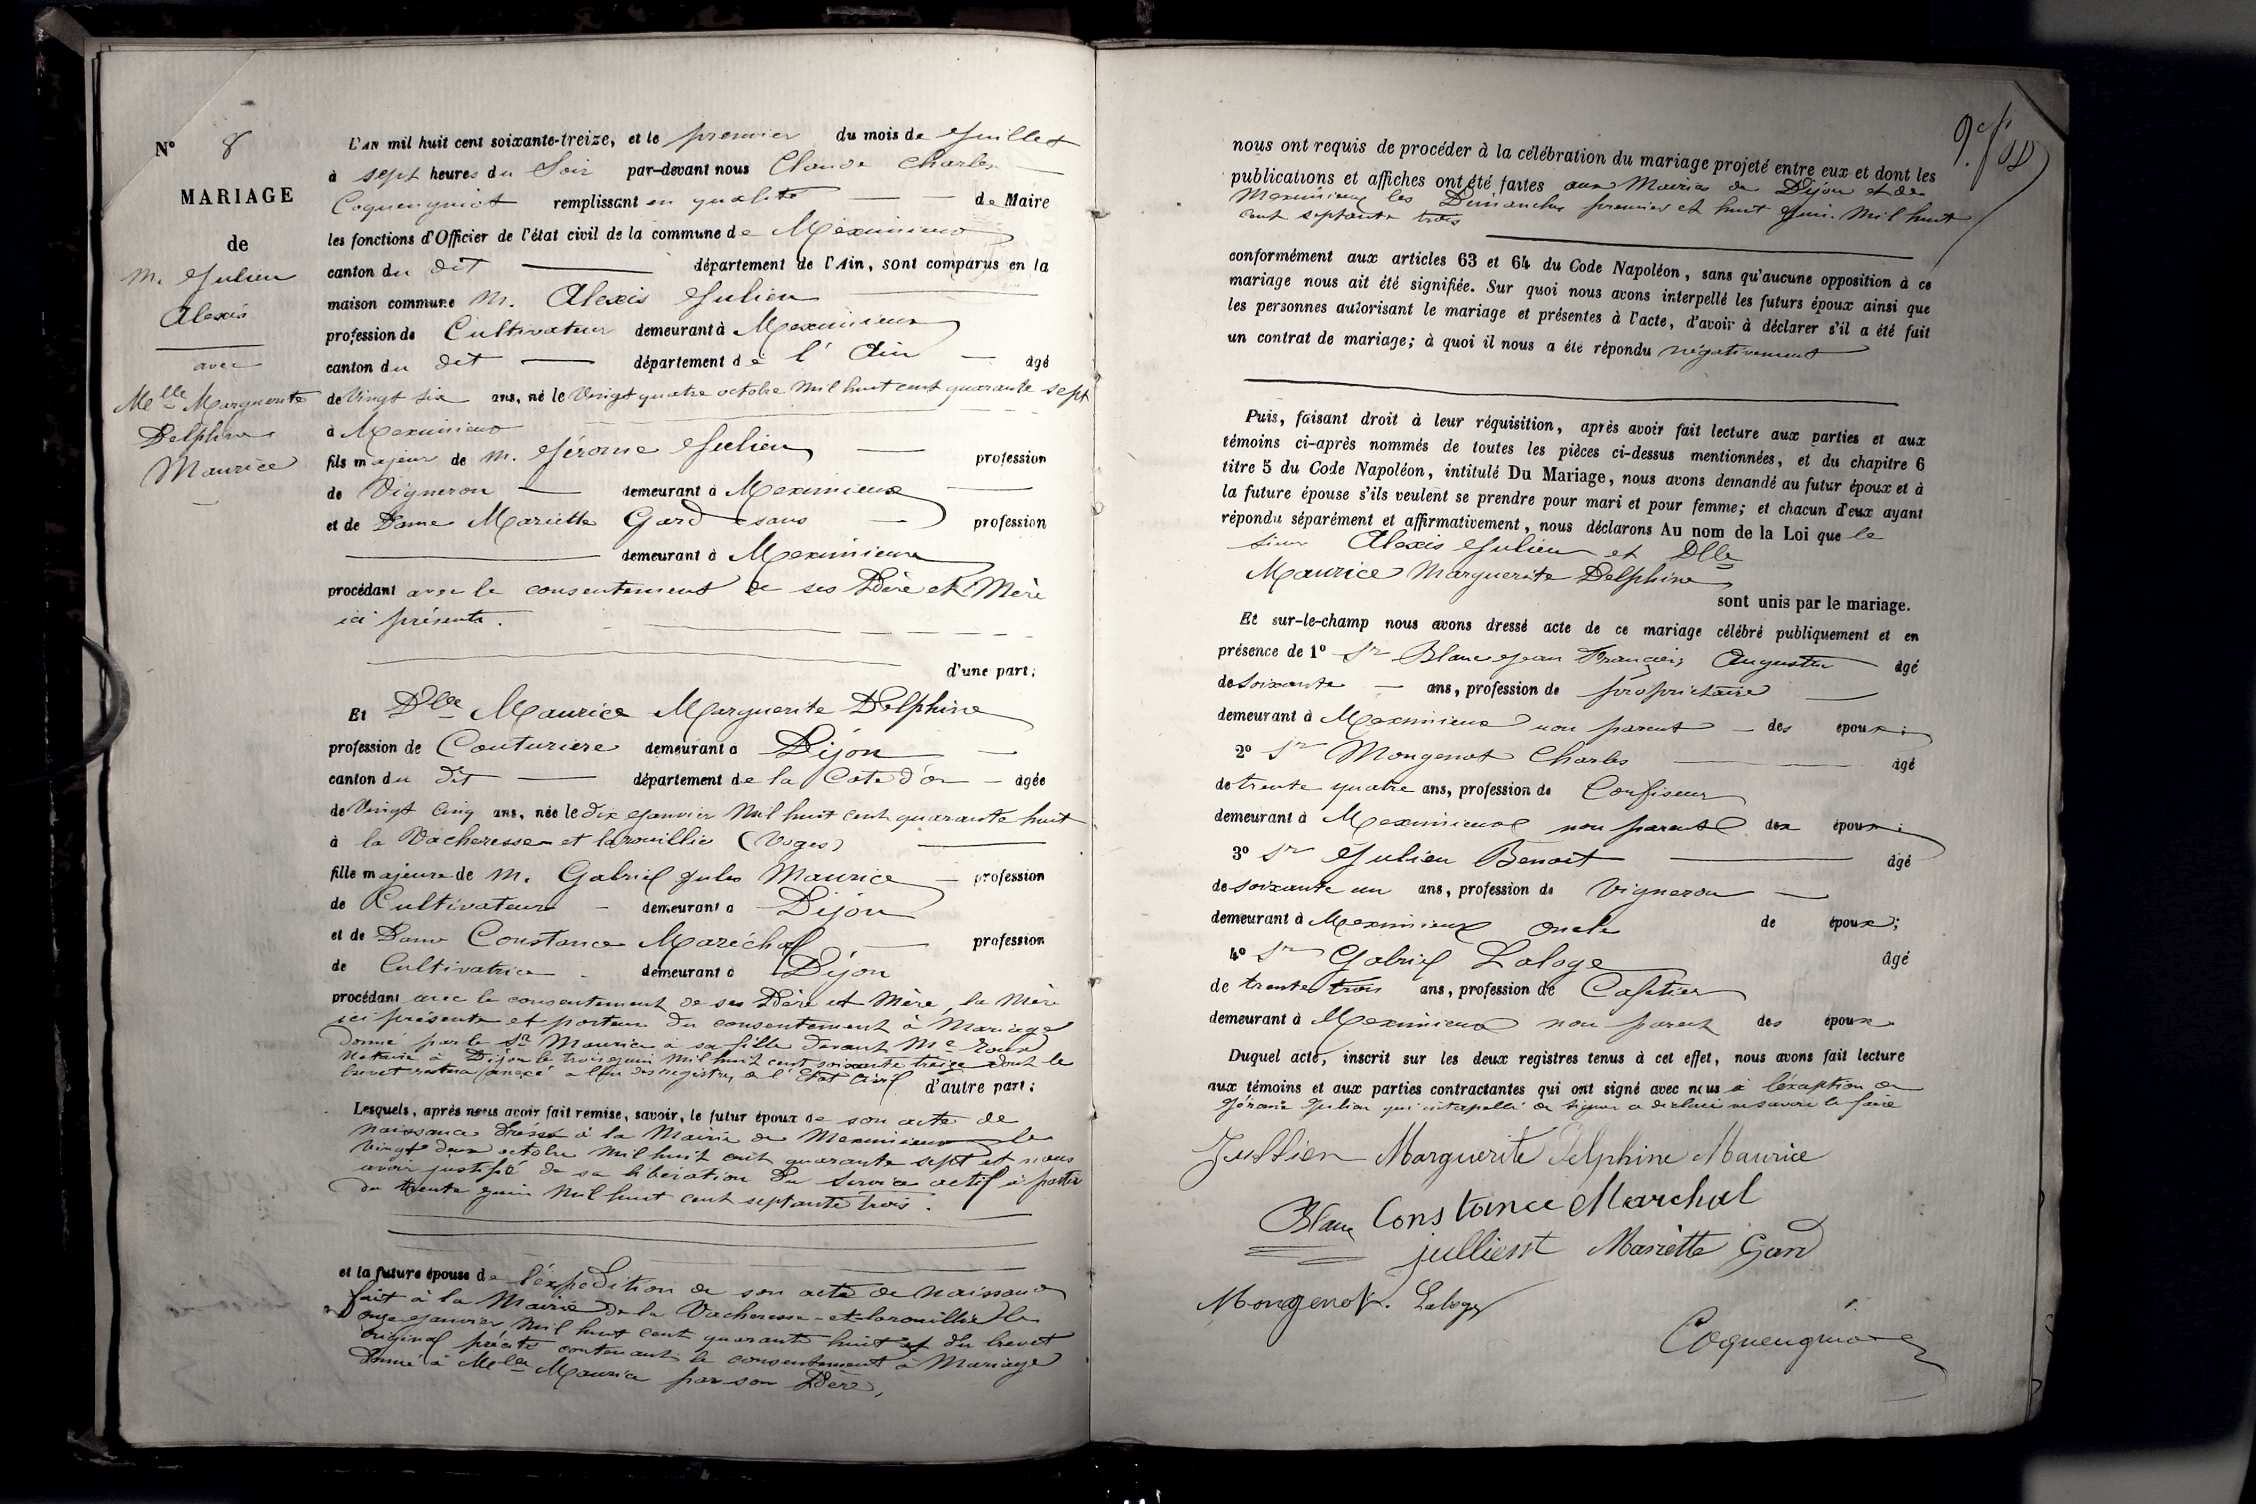 N° 8
MARIAGE
de
M. Julien
Alexis
avec
Melle Marguerite
Delphine
Maurice
L'AN mil huit cent soixante-treize, et le premier du mois de Juillet
à sept heures du Soir par-devant nous Claude Charles
Coquengniot remplissant en qualité de Maire
les fonctions d'Officier de l'état civil de la commune de Meximieux
canton du dit département de l'Ain, sont comparus en la
maison commune M. Alexis Julien
profession de Cultivateur demeurant à Meximieux
canton du dit département de l'Ain âgé
de Vingt six ans, né le Vingt quatre octobre Mil huit cent quarante sept
à Meximieux
fils majeur de M. Jérome Julien profession
de Vigneron demeurant à Meximieux
et de Dame Mariette Gard sans profession
demeurant à Meximieux
procédant avec le consentement de ses Père et Mère
ici présents.
d'une part;
Et Dlle Maurice Marguerite Delphine
profession de Couturière demeurant à Dijon
canton du dit département de la Côte d'or âgée
de Vingt cinq ans, née le dix Janvier Mil huit cent quarante huit
à la Vacheresse et larouillie (Vosges)
fille majeure de M. Gabriel Jules Maurice profession
de Cultivateur demeurant à Dijon
et de Dame Constance Maréchal profession
de Cultivatrice demeurant à Dijon
procédant avec le consentement de ses Père et Mère, la Mère
ici présente et porteur du consentement à Mariage
donné par le Sr Maurice à sa fille devant Me Roux
Notaire à Dijon le trois Juin Mil huit cent soixante treize dont le
brevet restera annexé à l'un des registres de l'Etat Civil d'autre part;
Lesquels, après nous avoir fait remise, savoir, le futur époux de son acte de
naissance dressé à la Mairie de Meximieux le
Vingt deux octobre Mil huit cent quarante sept et nous
avoir justifié de sa libération du service actif à partir
du trente Juin Mil huit cent septante trois.
et la future épouse de l'expédition de son acte de Naissance
fait à la Mairie de la Vacheresse-et-larouillie le
onze Janvier Mil huit cent quarante huit et du brevet
original précité contenant le consentement à Mariage
donné à Melle Maurice par son Père,
nous ont requis de procéder à la célébration du mariage projeté entre eux et dont les
publications et affiches ont été faites aux Mairies de Dijon et de
Meximieux les Dimanches premier et huit Juin Mil huit
cent septante trois
conformément aux articles 63 et 64 du Code Napoléon, sans qu'aucune opposition à ce
mariage nous ait été signifiée. Sur quoi nous avons interpellé les futurs époux ainsi que
les personnes autorisant le mariage et présentes à l'acte, d'avoir à déclarer s'il a été fait
un contrat de mariage; à quoi il nous a été répondu négativement
Puis, faisant droit à leur réquisition, après avoir fait lecture aux parties et aux
témoins ci-après nommés de toutes les pièces ci-dessus mentionnées, et du chapitre 6
titre 5 du Code Napoléon, intitulé Du Mariage, nous avons demandé au futur époux et à
la future épouse s'ils veulent se prendre pour mari et pour femme; et chacun d'eux ayant
répondu séparément et affirmativement, nous déclarons Au nom de la Loi que le
sieur Alexis Julien et Dlle
Maurice Marguerite Delphine
sont unis par le mariage.
Et sur-le-champ nous avons dressé acte de ce mariage célébré publiquement et en
présence de 1° Sr Blanc Jean François Augustin âgé
de Soixante ans, profession de propriétaire
demeurant à Meximieux non parent des époux;
2° Sr Mongenot Charles âgé
de trente quatre ans, profession de Confiseur
demeurant à Meximieux non parent des époux;
3° Sr Julien Benoit âgé
de soixante un ans, profession de Vigneron
demeurant à Meximieux oncle de époux;
4° Sr Gabriel Laloge âgé
de trente trois ans, profession de Cafetier
demeurant à Meximieux non parent des époux
Duquel acte, inscrit sur les deux registres tenus à cet effet, nous avons fait lecture
aux témoins et aux parties contractantes qui ont signé avec nous à l'exception de
Jérome Julien qui interpellé de signer a déclaré ne savoir le faire
Jullien Marguerite Delphine Maurice
Blanc Constance Marchal
jullient Mariette Gard
Mongenot. Laloge
Coquengniot